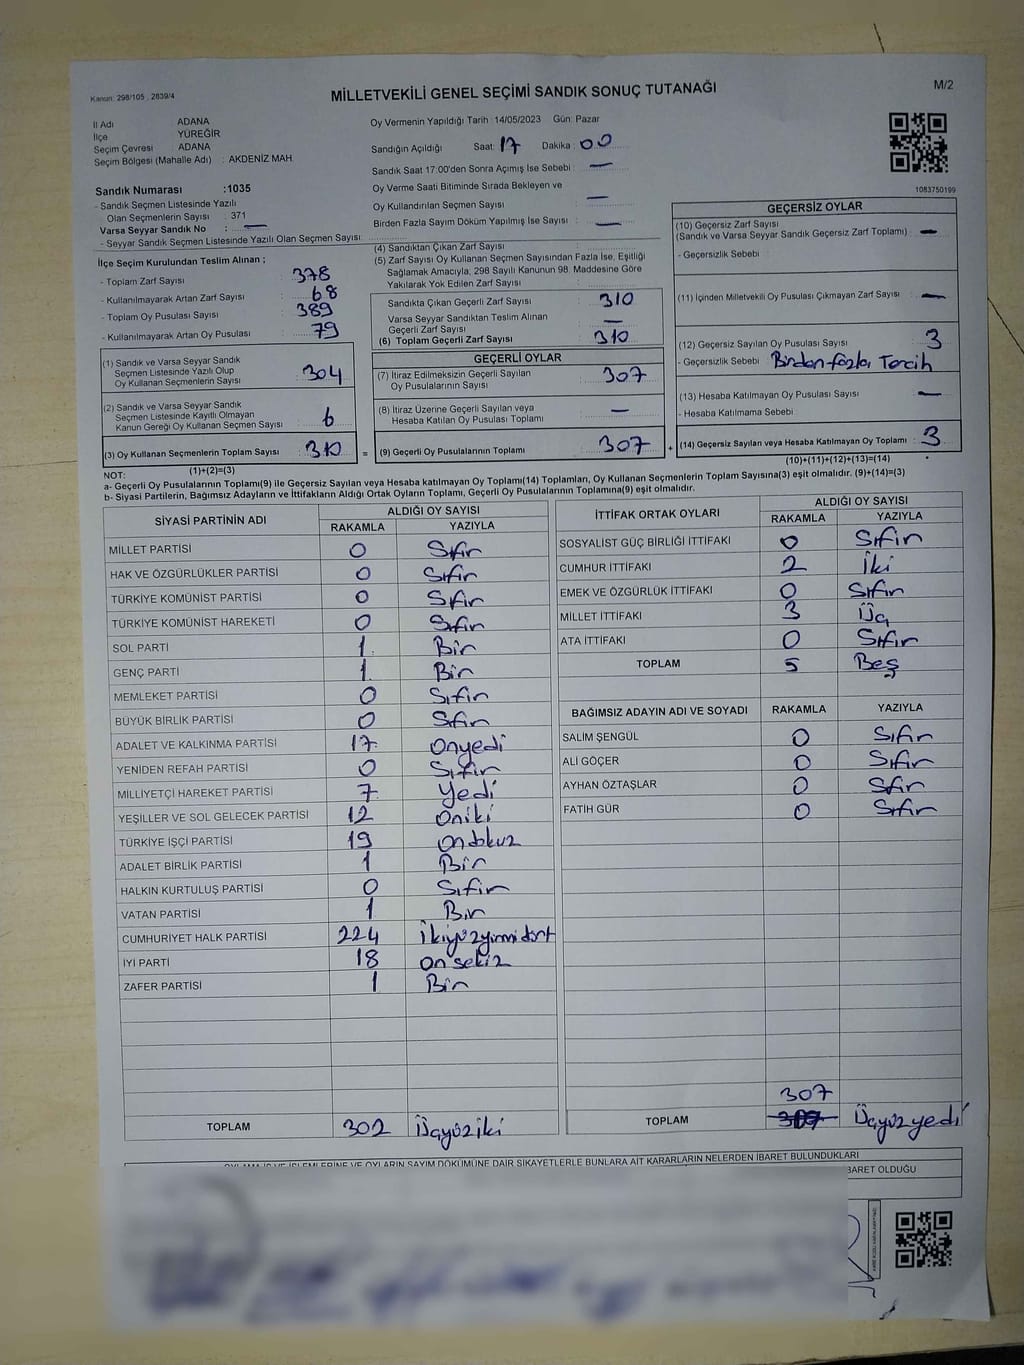 Kanun: 298/105 , 2839/4
MİLLETVEKİLİ GENEL SEÇİMİ SANDIK SONUÇ TUTANAĞI
M/2
İl Adı ADANA
İlçe YÜREĞİR
Seçim Çevresi ADANA
Seçim Bölgesi (Mahalle Adı) : AKDENİZ MAH
Sandık Numarası :1035
- Sandık Seçmen Listesinde Yazılı
Olan Seçmenlerin Sayısı : 371
Varsa Seyyar Sandık No : —
- Seyyar Sandık Seçmen Listesinde Yazılı Olan Seçmen Sayısı:
Oy Vermenin Yapıldığı Tarih :14/05/2023 Gün: Pazar
Sandığın Açıldığı Saat: 17 Dakika 00
Sandık Saat 17:00'den Sonra Açımış İse Sebebi : —
Oy Verme Saati Bitiminde Sırada Bekleyen ve
Oy Kullandırılan Seçmen Sayısı : —
Birden Fazla Sayım Döküm Yapılmış İse Sayısı : —
1083750199
İlçe Seçim Kurulundan Teslim Alınan ;
- Toplam Zarf Sayısı : 378
- Kullanılmayarak Artan Zarf Sayısı : 68
- Toplam Oy Pusulası Sayısı : 389
- Kullanılmayarak Artan Oy Pusulası : 79
(1) Sandık ve Varsa Seyyar Sandık
Seçmen Listesinde Yazılı Olup
Oy Kullanan Seçmenlerin Sayısı : 304
(2) Sandık ve Varsa Seyyar Sandık
Seçmen Listesinde Kayıtlı Olmayan
Kanun Gereği Oy Kullanan Seçmen Sayısı : 6
(3) Oy Kullanan Seçmenlerin Toplam Sayısı : 310
(1)+(2)=(3)
(4) Sandıktan Çıkan Zarf Sayısı :
(5) Zarf Sayısı Oy Kullanan Seçmen Sayısından Fazla İse, Eşitliği
Sağlamak Amacıyla, 298 Sayılı Kanunun 98. Maddesine Göre
Yakılarak Yok Edilen Zarf Sayısı :
Sandıkta Çıkan Geçerli Zarf Sayısı : 310
Varsa Seyyar Sandıktan Teslim Alınan
Geçerli Zarf Sayısı : —
(6) Toplam Geçerli Zarf Sayısı : 310
GEÇERLİ OYLAR
(7) İtiraz Edilmeksizin Geçerli Sayılan
Oy Pusulalarının Sayısı : 307
(8) İtiraz Üzerine Geçerli Sayılan veya
Hesaba Katılan Oy Pusulası Toplamı : —
= (9) Geçerli Oy Pusulalarının Toplamı : 307
GEÇERSİZ OYLAR
(10) Geçersiz Zarf Sayısı
(Sandık ve Varsa Seyyar Sandık Geçersiz Zarf Toplamı) : —
- Geçersizlik Sebebi :
(11) İçinden Milletvekili Oy Pusulası Çıkmayan Zarf Sayısı : —
(12) Geçersiz Sayılan Oy Pusulası Sayısı : 3
- Geçersizlik Sebebi : Birden fazla Tercih
(13) Hesaba Katılmayan Oy Pusulası Sayısı : —
- Hesaba Katılmama Sebebi :
+ (14) Geçersiz Sayılan veya Hesaba Katılmayan Oy Toplamı : 3
(10)+(11)+(12)+(13)=(14)
NOT:
a- Geçerli Oy Pusulalarının Toplamı(9) ile Geçersiz Sayılan veya Hesaba katılmayan Oy Toplamı(14) Toplamları, Oy Kullanan Seçmenlerin Toplam Sayısına(3) eşit olmalıdır. (9)+(14)=(3)
b- Siyasi Partilerin, Bağımsız Adayların ve İttifakların Aldığı Ortak Oyların Toplamı, Geçerli Oy Pusulalarının Toplamına(9) eşit olmalıdır.
SİYASİ PARTİNİN ADI ALDIĞI OY SAYISI
RAKAMLA YAZIYLA
MİLLET PARTİSİ 0 Sıfır
HAK VE ÖZGÜRLÜKLER PARTİSİ 0 Sıfır
TÜRKİYE KOMÜNİST PARTİSİ 0 Sıfır
TÜRKİYE KOMÜNİST HAREKETİ 0 Sıfır
SOL PARTİ 1 Bir
GENÇ PARTİ 1 Bir
MEMLEKET PARTİSİ 0 Sıfır
BÜYÜK BİRLİK PARTİSİ 0 Sıfır
ADALET VE KALKINMA PARTİSİ 17 onyedi
YENİDEN REFAH PARTİSİ 0 Sıfır
MİLLİYETÇİ HAREKET PARTİSİ 7 yedi
YEŞİLLER VE SOL GELECEK PARTİSİ 12 oniki
TÜRKİYE İŞÇİ PARTİSİ 19 ondokuz
ADALET BİRLİK PARTİSİ 1 Bir
HALKIN KURTULUŞ PARTİSİ 0 Sıfır
VATAN PARTİSİ 1 Bir
CUMHURİYET HALK PARTİSİ 224 ikiyüzyirmidört
İYİ PARTİ 18 onsekiz
ZAFER PARTİSİ 1 Bir
TOPLAM 302 Üçyüziki
İTTİFAK ORTAK OYLARI ALDIĞI OY SAYISI
RAKAMLA YAZIYLA
SOSYALİST GÜÇ BİRLİĞİ İTTİFAKI 0 Sıfır
CUMHUR İTTİFAKI 2 İki
EMEK VE ÖZGÜRLÜK İTTİFAKI 0 Sıfır
MİLLET İTTİFAKI 3 Üç
ATA İTTİFAKI 0 Sıfır
TOPLAM 5 Beş
BAĞIMSIZ ADAYIN ADI VE SOYADI RAKAMLA YAZIYLA
SALİM ŞENGÜL 0 Sıfır
ALİ GÖÇER 0 Sıfır
AYHAN ÖZTAŞLAR 0 Sıfır
FATİH GÜR 0 Sıfır
307
TOPLAM 307 Üçyüzyedi
OYLAMA İŞ VE İŞLEMLERİNE VE OYLARIN SAYIM DÖKÜMÜNE DAİR ŞİKAYETLERLE BUNLARA AİT KARARLARIN NELERDEN İBARET BULUNDUKLARI
BARET OLDUĞU